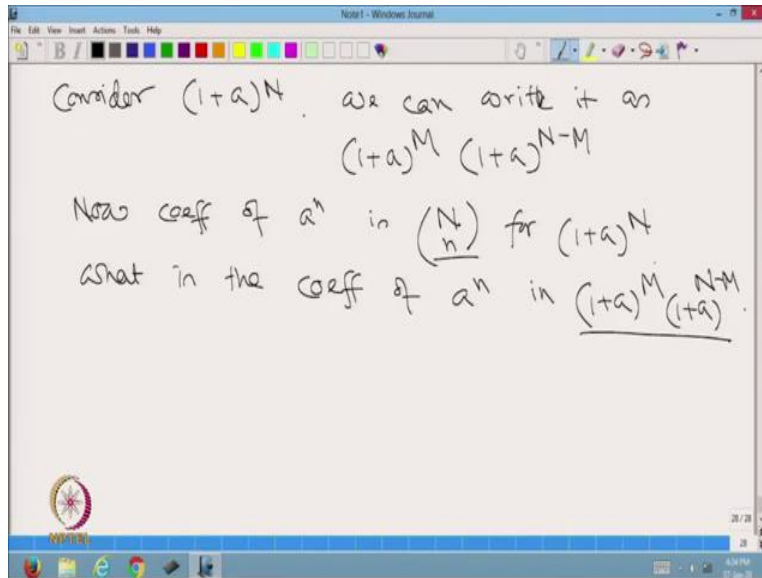 Note1 - Windows Journal
File Edit View Insert Actions Tools Help
B I
Consider (1+a)^N. we can write it as
(1+a)^M (1+a)^{N-M}
Now coeff of a^n is \binom{N}{n} for (1+a)^N
What is the coeff of a^n in (1+a)^M (1+a)^{N-M}.
NPTEL
28 / 28
28